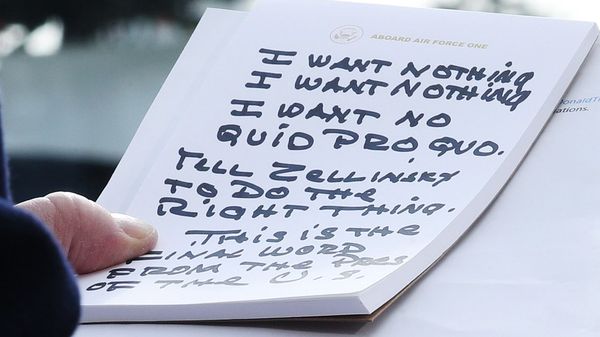 ABOARD AIR FORCE ONE
I WANT NOTHING
I WANT NOTHING
I WANT NO
QUID PRO QUO.
TELL ZELLINSKY
TO DO THE
RIGHT THING.
THIS IS THE
FINAL WORD
FROM THE PRES
OF THE U.S.
DonaldT
ations.